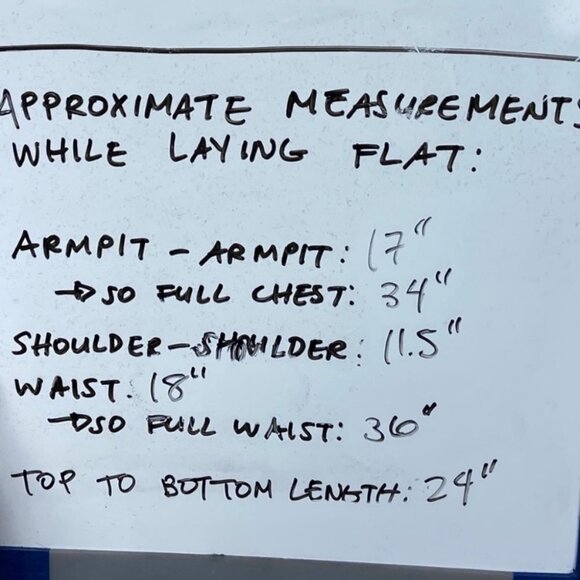 APPROXIMATE MEASUREMENTS
WHILE LAYING FLAT:
ARMPIT - ARMPIT: 17"
→ SO FULL CHEST: 34"
SHOULDER-SHOULDER: 11.5"
WAIST: 18"
→ SO FULL WAIST: 36"
TOP TO BOTTOM LENGTH: 24"